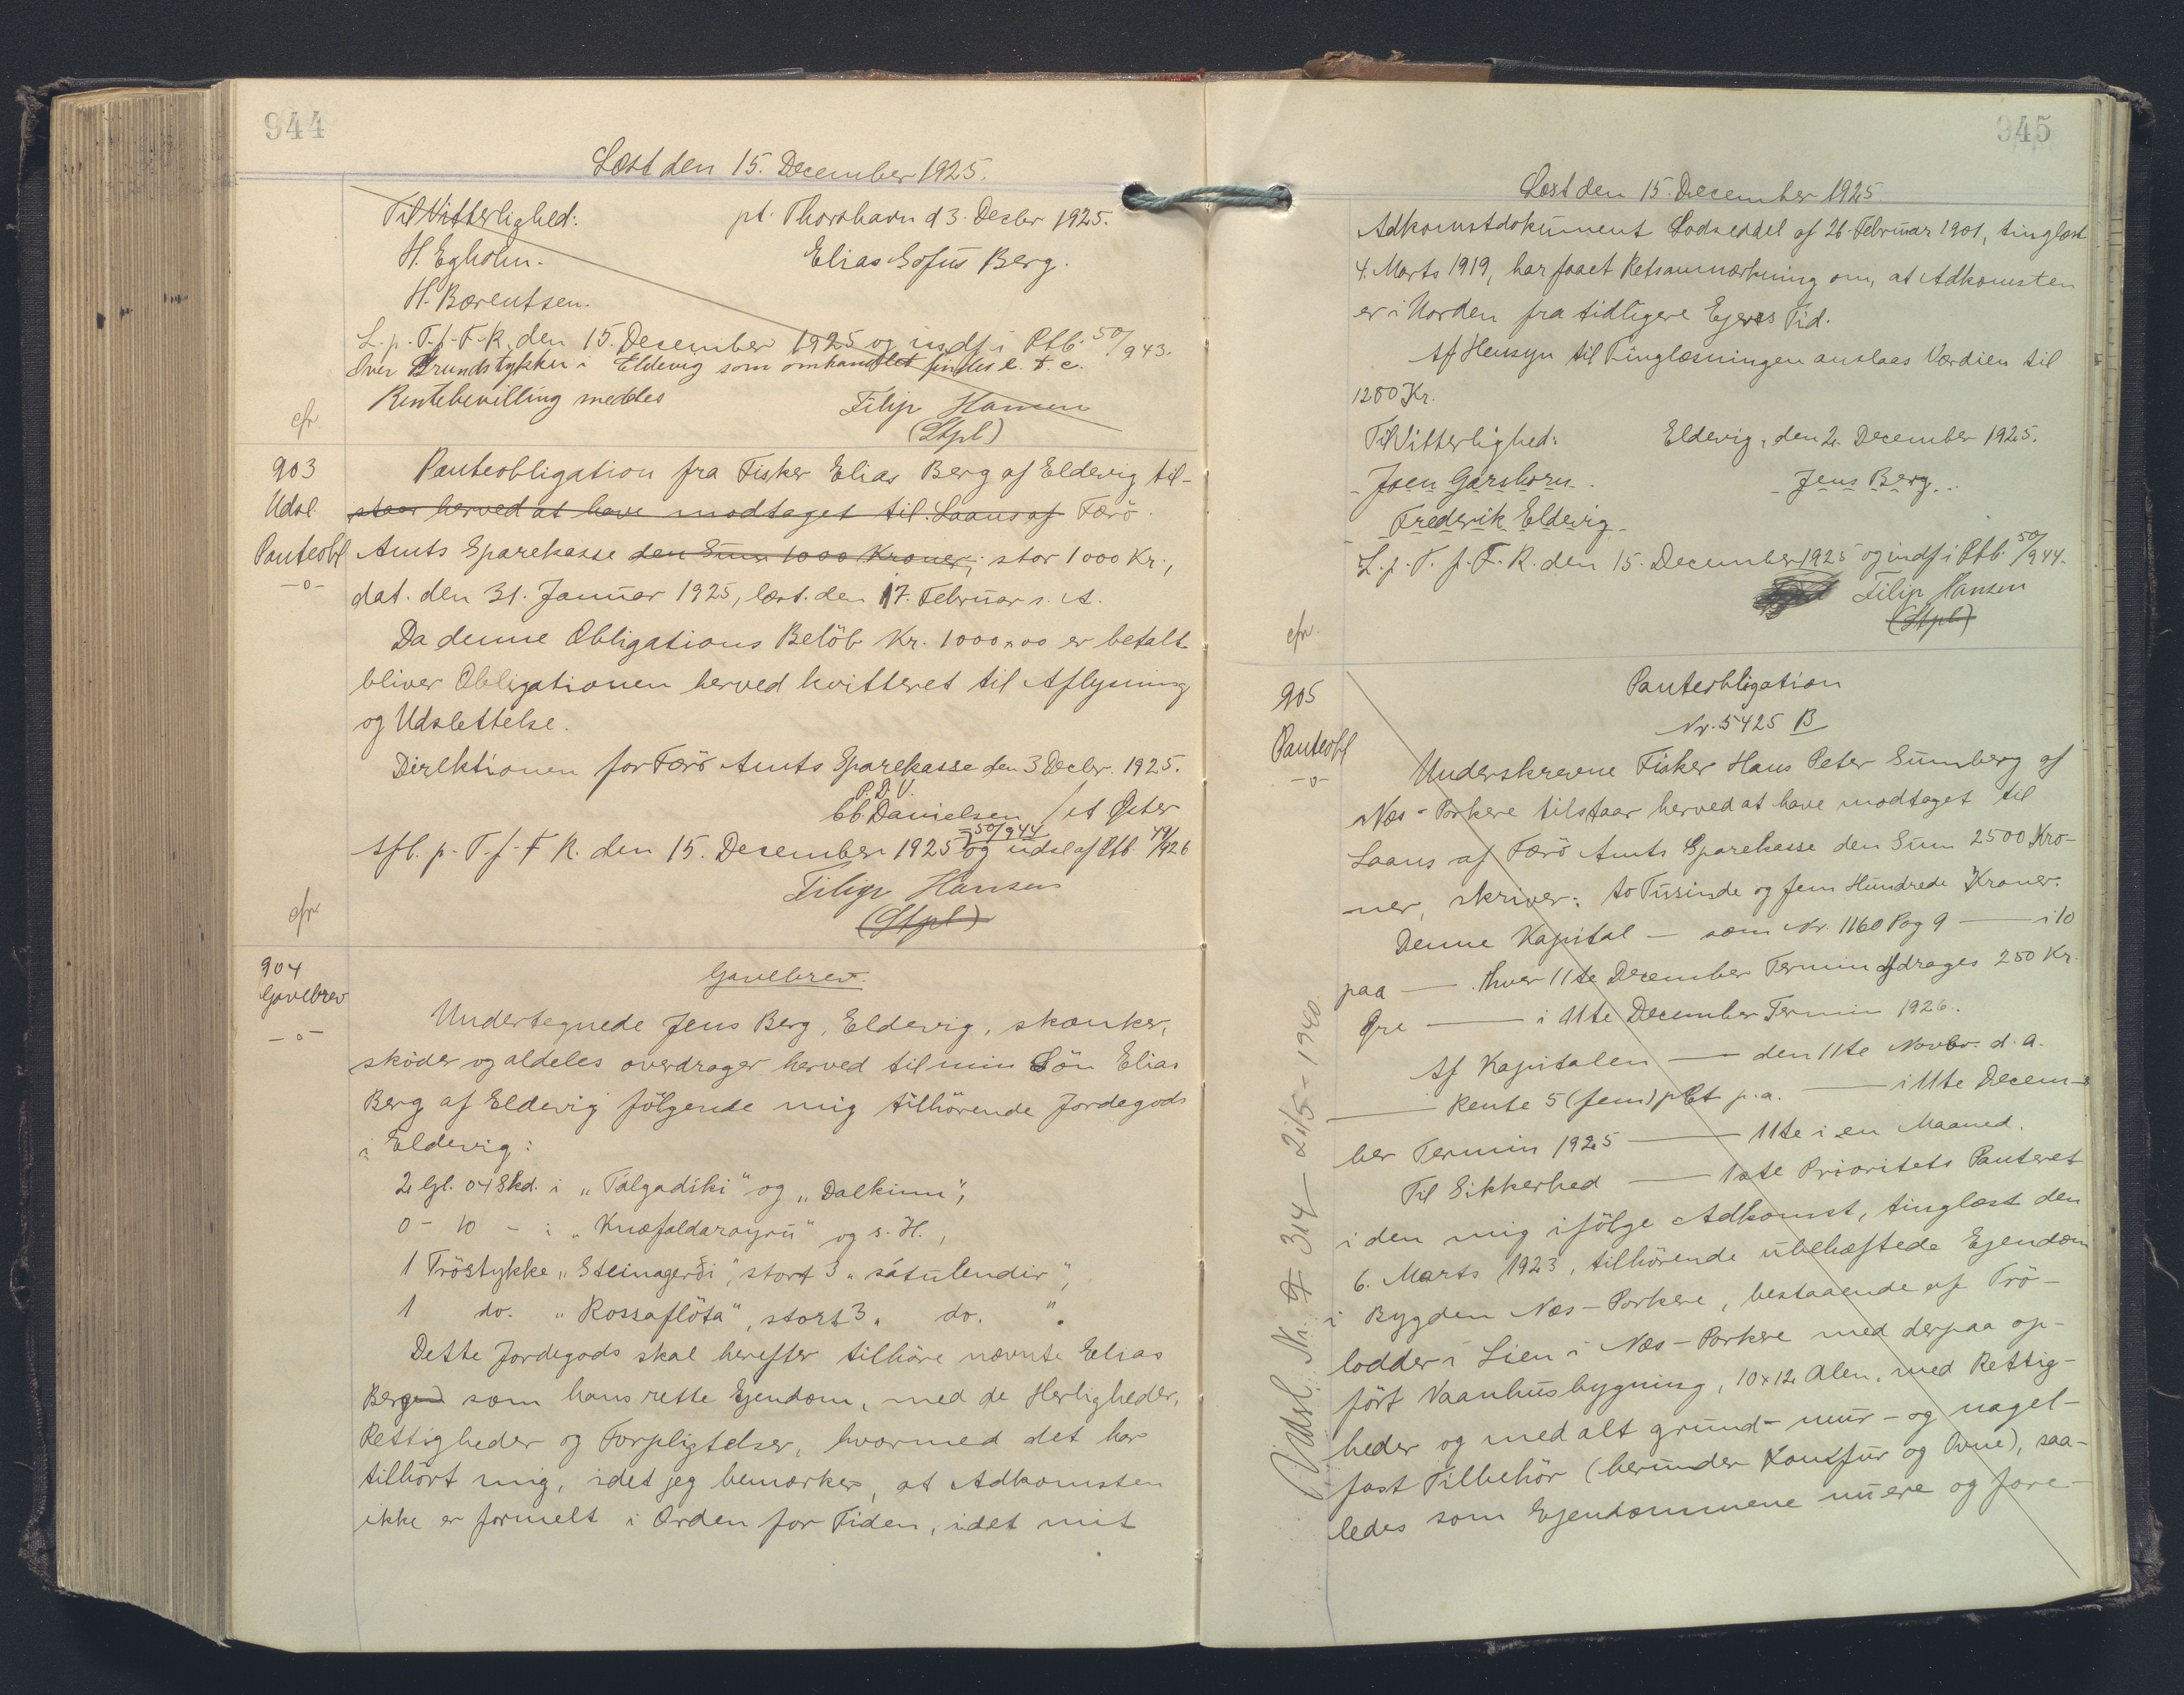 944
Læst den 15. December 1925.
Til Vitterlighed: pt. Thorshavn d 3. Decbr 1925.
H. Egholm. Elias Sofus Berg.
H. Bærentsen.
L. p. T. f. F. R. den 15. December 1925 og indf i Ptb. 50/943.
Over Grundstykker i Eldevig som omhandlet findes e. t. c.
Rentebevilling meddeles Filip Hansen
cfr (Stpl)
903 Panteobligation fra Fisker Elias Berg af Eldevig til-
Udsl. staar herved at have modtaget til Laans af Færö
Panteobl Amts Sparekasse den Sum 1000 Kroner, stor 1000 Kr.,
-o- dat. den 31. Januar 1925, læst. den 17. Februar s. A.
Da denne Obligations Belöb Kr. 1000,00 er betalt
bliver Obligationen herved kvitteret til Aflysning
og Udslettelse.
Direktionen for Færö Amts Sparekasse den 3 Decbr. 1925.
P. D. V.
Danielsen / A Øster
50/944
Afl. p. T. f. F R. den 15. December 1925 og udsl af Ptb 49/426
Filip Hansen
cfr (Stpl)
904
Gavebrev Gavebrev.
-o- Undertegnede Jens Berg, Eldevig, skænker,
sköder og aldeles overdrager herved til min Sön Elias
Berg af Eldevig fölgende mig tilhörende Jordegods
i Eldevig:
2 Gl. 04 Skd. i „Tálgadíki" og „Dalkinn",
0 - 10 - : „Knæfaldaroyru" og s. H.,
1 Tröstykke „Steinagerði", stort 3 „sátulendir",
1 do. „Rossaflöta", stort 3 „ do. ".
Dette Jordegods skal herefter tilhöre nævnte Elias
Berg som hans rette Ejendom, med de Herligheder,
Rettigheder og Forpligtelser, hvormed det har
tilhört mig, idet jeg bemærker, at Adkomsten
ikke er formelt i Orden for Tiden, idet mit
945
Læst den 15. December 1925
Adkomstdokument Lodseddel af 26. Februar 1901, tinglæst
4. Marts 1919, har faaet Retsanmærkning om, at Adkomsten
er i Uorden fra tidligere Ejeres Tid.
Af Hensyn til Tinglæsningen anslaas Værdien til
1280 Kr.
Til Vitterlighed: Eldevig, den 2. December 1925.
Joen Garshorn. Jens Berg.
Frederik Eldevig.
L. p. T. f. F. R. den 15. December 1925 og indf i Ptb. 50/944.
Filip Hansen
cfr. (Stpl)
905 Panteobligation
Nr. 5425 B
Panteobl
-o- Underskrevne Fisker Hans Peter Sumberg af
Næs - Porkere tilstaar herved at have modtaget til
Laans af Færö Amts Sparekasse den Sum 2500 Kro-
ner, skriver: to Tusinde og fem Hundrede Kroner.
Denne Kapital — som Nr. 1160 Pag 9 — i 10
paa — hver 11te December Termin afdrages 250 Kr.
Øre — i 11te December Termin 1926.
Af Kapitalen — den 11te Novbr. d. A.
— Rente 5 (fem) pCt p. a. — i 11te Decem-
ber Termin 1925 — 11te i en Maaned.
Til Sikkerhed — 1ste Prioritets Panteret
i den mig ifölge Adkomst, tinglæst den
6. Marts 1923, tilhörende ubehæftede Ejendom
i Bygden Næs - Porkere, bestaaende af Trö-
lodder i Lien i Næs - Porkere med derpaa op-
fört Vaanhusbygning, 10 x 12 Alen, med Rettig-
heder og med alt grund- mur- og nagel-
fast Tilbehör (herunder Komfur og Ovne), saa-
ledes som Ejendommene nu ere og fore-
Udsl. Nr. 314 — 21/5 - 1940.